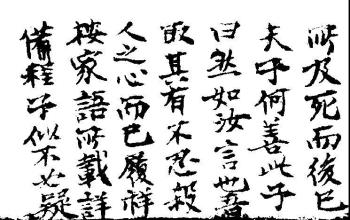 所及死而後已
夫子何善此子
曰然如汝言也吾
取其有不忍殺
人之心而已顏祥
按家語所載詳
備程子似不必疑